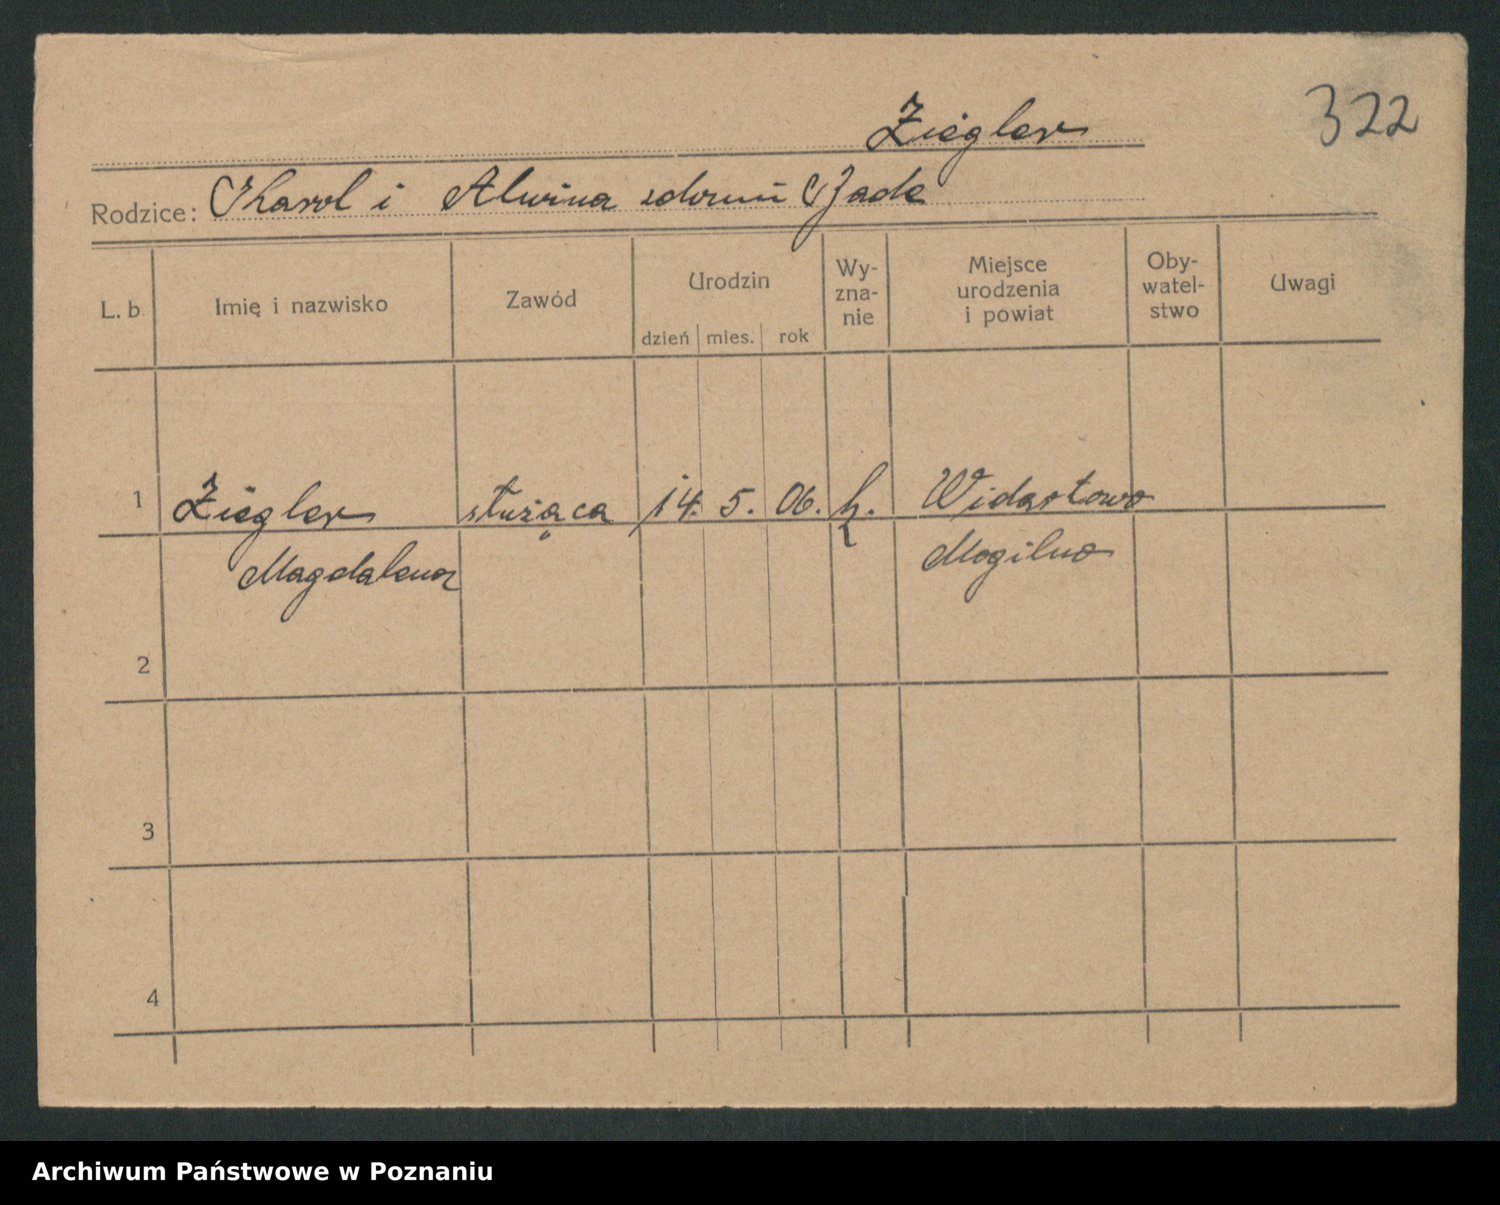 Ziegler
322
Rodzice: Karol i Alwina zdomu Jade
L. b
Imię i nazwisko
Zawód
Urodzin
dzień mies. rok
Wy-
zna-
nie
Miejsce
urodzenia
i powiat
Oby-
watel-
stwo
Uwagi
1 Ziegler służąca 14. 5. 06. k.
Magdalena Mogilno
2
3
4
Archiwum Państwowe w Poznaniu